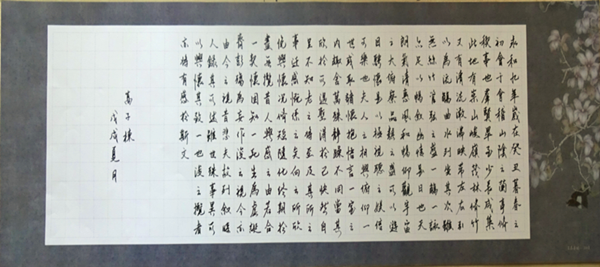 永和九年歲在癸丑暮春之
初會于會稽山陰之蘭亭脩
禊事也群賢畢至少長咸集
此地有崇山峻領茂林脩竹
又有清流激湍映帶左右引
以為流觴曲水列坐其次雖
無絲竹管弦之盛一觴一詠
亦足以暢敘幽情是日也天
朗氣清惠風和暢仰觀宇宙
之大俯察品類之盛所以遊
目騁懷足以極視聽之娛信
可樂也夫人之相與俯仰一
世或取諸懷抱悟言一室之
內趣舍萬殊靜躁不同當其
欣於所遇暫得於己快然自
足不知老之將至及其所之
事遷感慨係之矣向之所欣
俛況脩短隨化終期於
盡每覽昔人興感之由若合
一契固知一死生為虛誕
齊彭殤為妄作後之視今亦
由今之視昔悲夫故列敘時
人錄其所述雖世殊事異所
以興懷其致一也後之攬者
亦將有感於斯文
高子棟
戊戌夏月